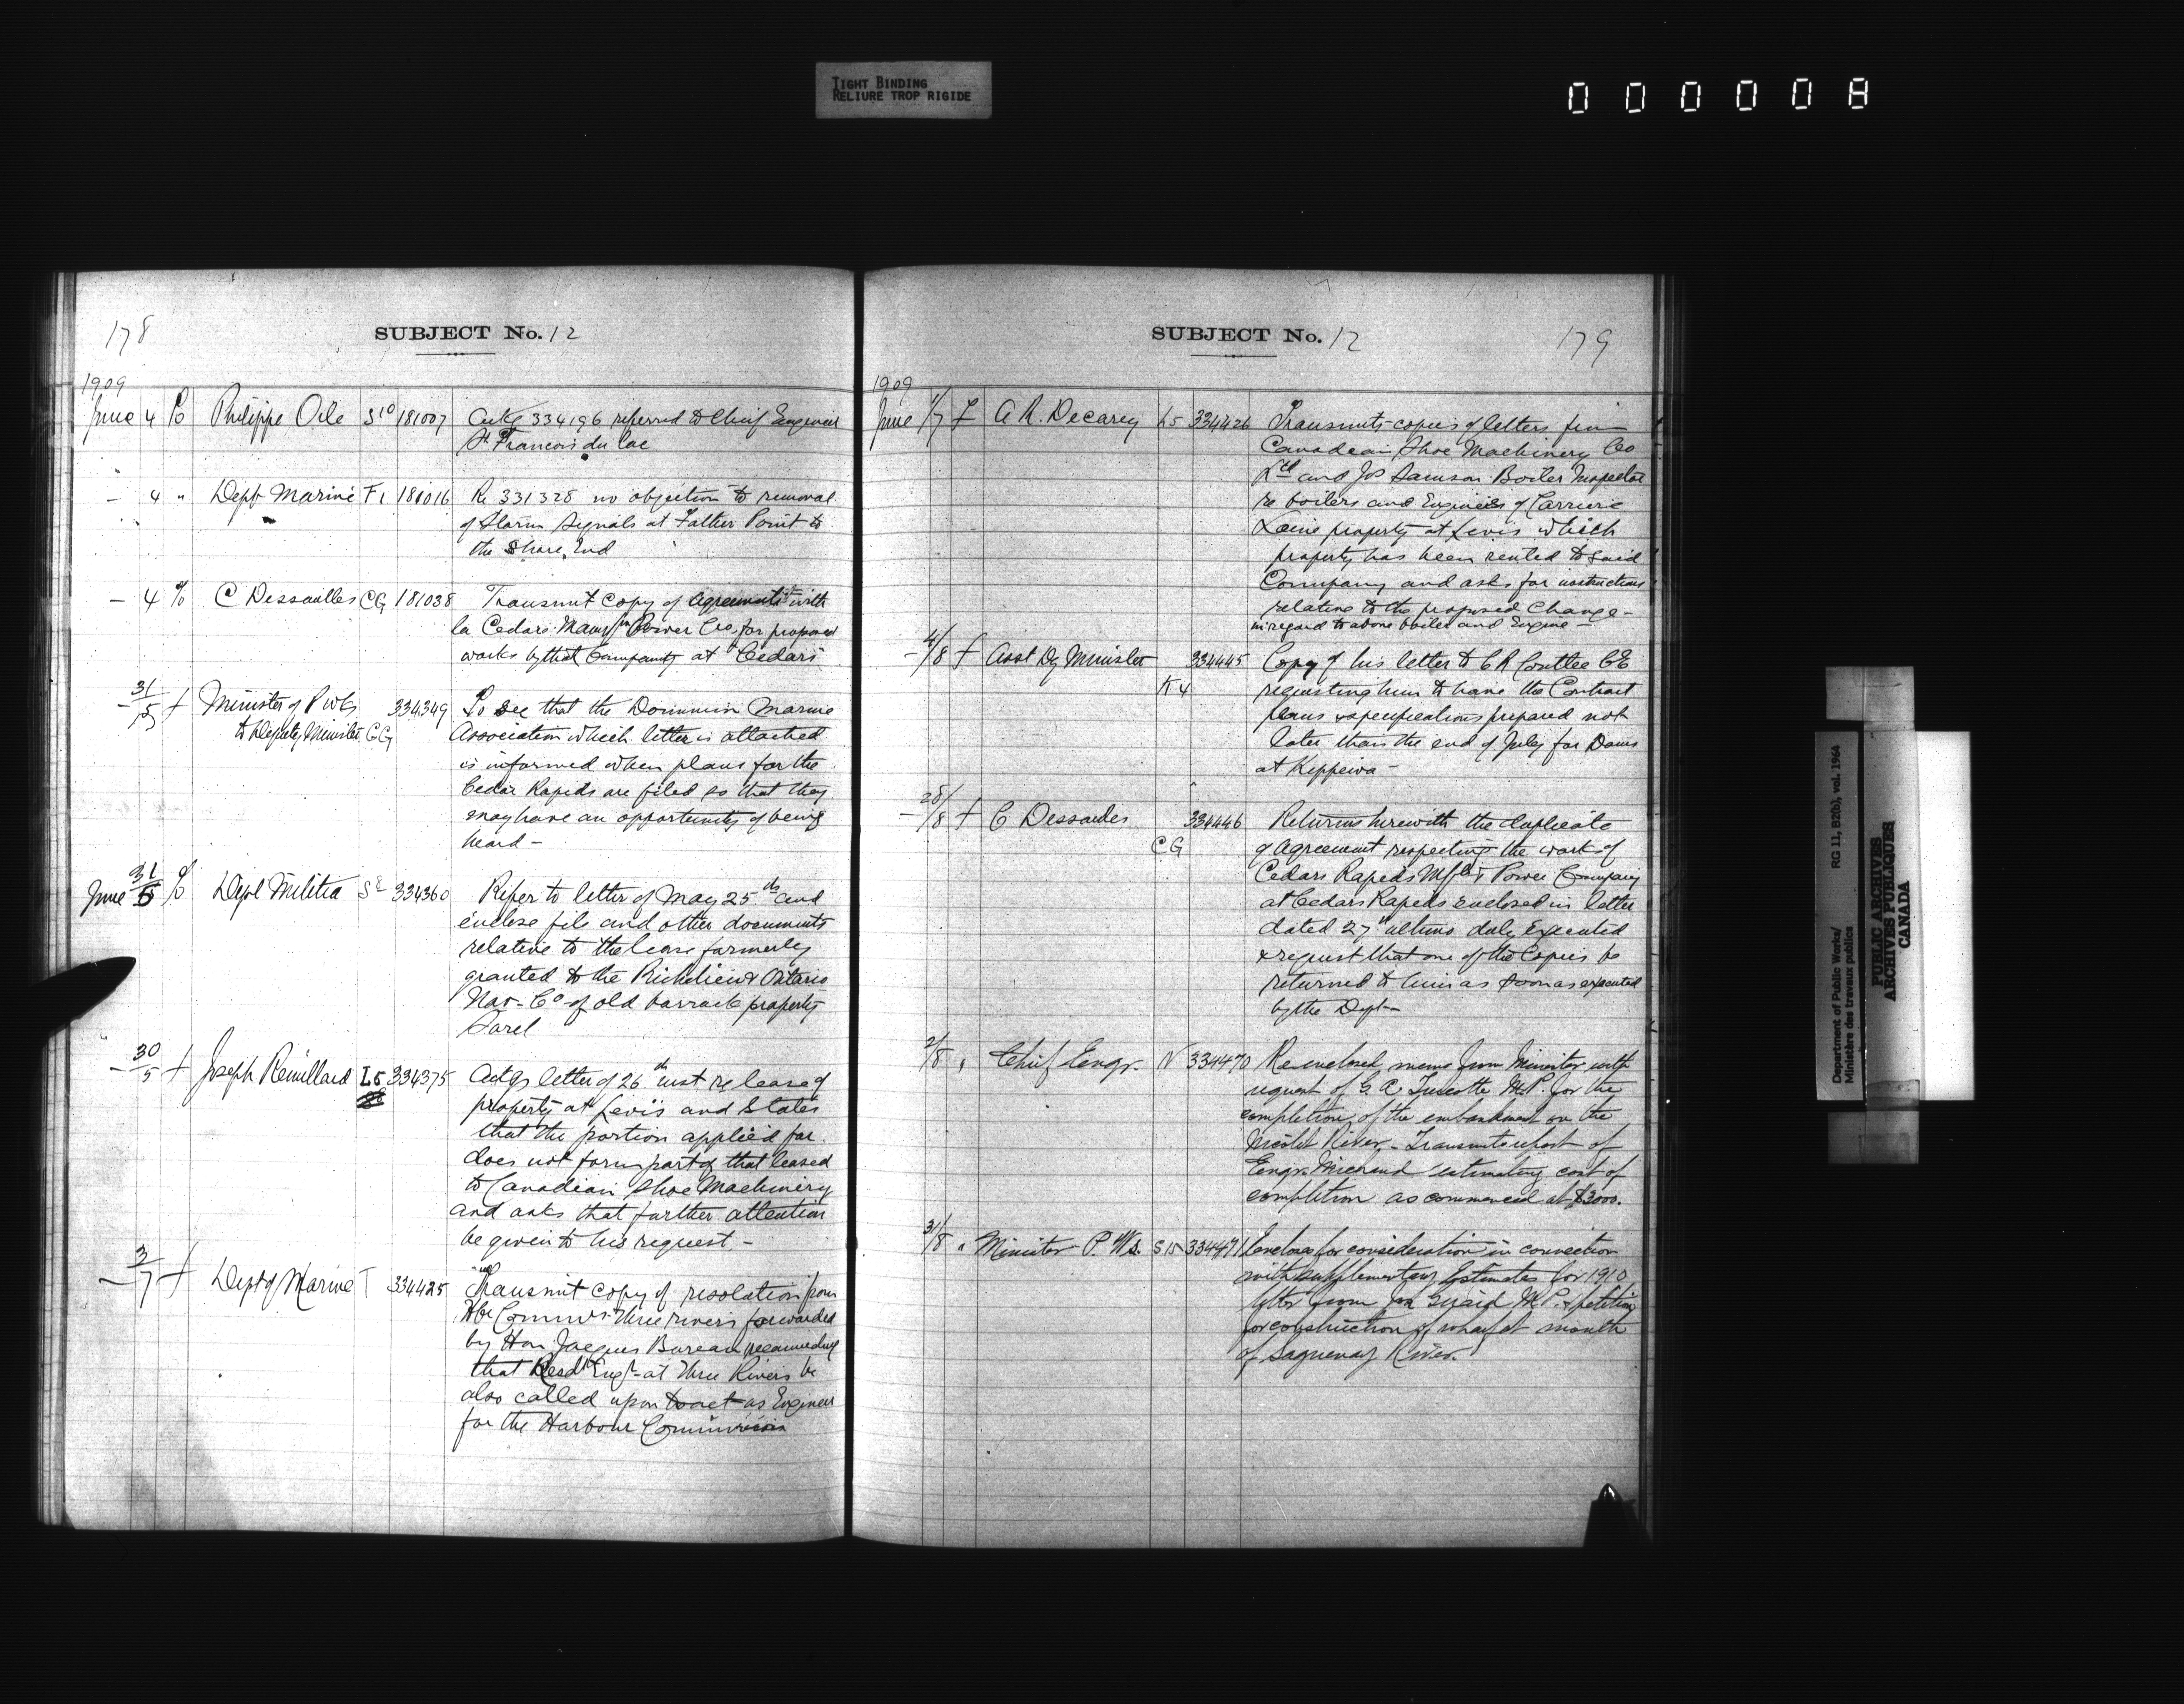 TIGHT BINDING
RELIURE TROP RIGIDE
0 0 0 0 0 8
178
SUBJECT No. 12
1909
June 4 Philippe Ode S10 181007 Ackg 334196 referred to Chief Engineer
St Francois du Lac
— 4 " Dept Marine F1 181016 Re 331328 no objection to removal
of Storm Signals at Father Point to
the Shore End
— 4 C Dessaulles CG 181038 Transmit Copy of agreements with
la Cedars Power Co, for proposed
works by that Company at Cedars
— 31/5 Minister of P Wks 334349 To see that the Dominion Marine
to Deputy Minister CG Association which letter is attached
is informed when plans for the
Cedar Rapids are filed so that they
may have an opportunity of being
heard —
June 31/5 Dept Militia S8 334360 Refer to letter of May 25th and
enclose file and other documents
relative to the lease formerly
granted to the Richelieu & Ontario
Nav- Co of old barrack property
Sorel
— 30/5 Joseph Remillard L5 334375 Ackgs letter of 26th inst re lease of
property at Levis and States
that the portion applied for
does not form part of that leased
to Canadian Shoe Machinery
and asks that further attention
be given to his request. —
— 3/7 Dept of Marine T 334425 Transmit copy of resolution from
Hbr Commrs Three rivers forwarded
by Hon Jacques Bureau
that Resdt Engr at Three Rivers be
also called upon to act as Engineer
for the Harbour Commission
SUBJECT No. 12
179
1909
June 1/7 A R. Decarey L5 334426 Transmits copies of letters from
Canadian Shoe Machinery Co
Ltd and Jos Samson Boiler Inspector
re boilers and Engines of Carriere
Laine property at Levis which
property has been rented to said
Company and asks for instructions
relative to the proposed Change —
in regard to above boiler and Engine —
— 4/8 Asst Dy Minister 334445 Copy of his letter to C R Coutlee CE
K4 requesting him to have the Contract
plans & specifications prepared not
later than the end of July for Dams
at Kippewa —
— 28/8 C Dessaules 334446 Returns herewith the duplicate
CG of Agreement respecting the work of
Cedars Rapids Mfg & Power Company
at Cedars Rapids enclosed in letter
dated 27th ultimo duly Executed
& request that one of the Copies be
returned to him as soon as executed
by the Dept —
2/8 " Chief Engr. N 334470 Re enclosed memo from Minister with
request of G. A. Turcotte M.P. for the
completion of the embankment on the
Nicolet River — Transmits report of
Engr. Michaud estimating cost of
completion as commenced at $3000.
31/8 " Minister P. Ws. S15 334471 Encloses for consideration in connection
with supplementary Estimates for 1910
letter from Jos Girard M.P. & petition
for construction of wharf at mouth
of Saguenay River.
Department of Public Works/ RG 11, B2(b), vol. 1964
Ministère des travaux publics
PUBLIC ARCHIVES
ARCHIVES PUBLIQUES
CANADA